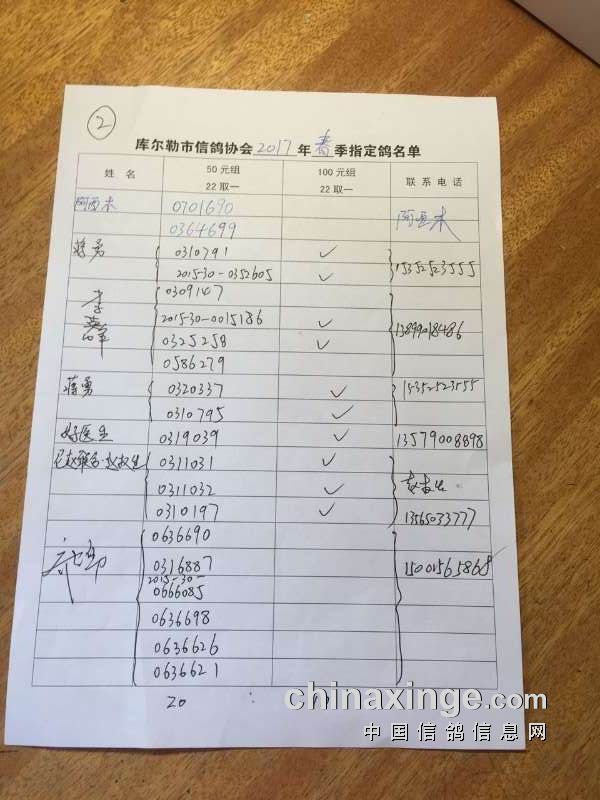 ②
库尔勒市信鸽协会2017年春季指定鸽名单
姓 名 50元组 22取一 100元组 22取一 联系电话
阿西木 0701690 阿西木
0364699
蒋勇 0310791 ✓ 15352523555
2015-30-0352605 ✓
0309147
李 2015-30-0015186 ✓ 13899018486
0325258 ✓
0586279
蒋勇 0320337 ✓ 15352523555
0310795 ✓
好医生 0319039 ✓ 13579008898
0311031 ✓
0311032 ✓
0310197 ✓ 13565033777
0636690
0316887 15001565868
2015-30-
0666085
0636698
0636626
0636621
20
chinaxinge.com
中国信鸽信息网